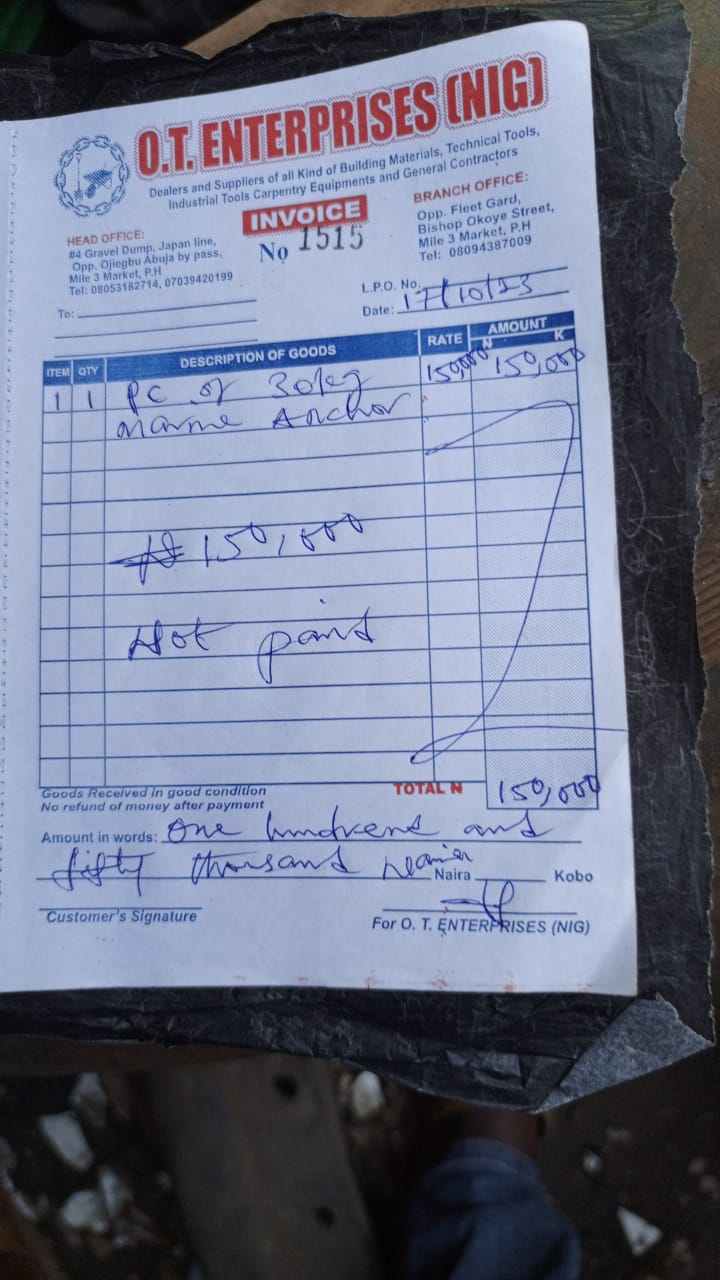 O.T. ENTERPRISES (NIG)
Dealers and Suppliers of all Kind of Building Materials, Technical Tools,
Industrial Tools Carpentry Equipments and General Contractors
INVOICE
No 1515
HEAD OFFICE:
#4 Gravel Dump, Japan line,
Opp. Ojiegbu Abuja by pass,
Mile 3 Market, P.H
Tel: 08053182714, 07039420199
BRANCH OFFICE:
Opp. Fleet Gard,
Bishop Okoye Street,
Mile 3 Market, P.H
Tel: 08094387009
To:
L.P.O. No.
Date: 17/10/23
ITEM QTY DESCRIPTION OF GOODS RATE AMOUNT
N K
1 1 pc of 30kg 150,000 150,000
marine Anchor
₦ 150,000
Not paid
Goods Received in good condition
No refund of money after payment
TOTAL N 150,000
Amount in words: One hundred and
fifty thousand Naira Kobo
Customer's Signature
For O. T. ENTERPRISES (NIG)